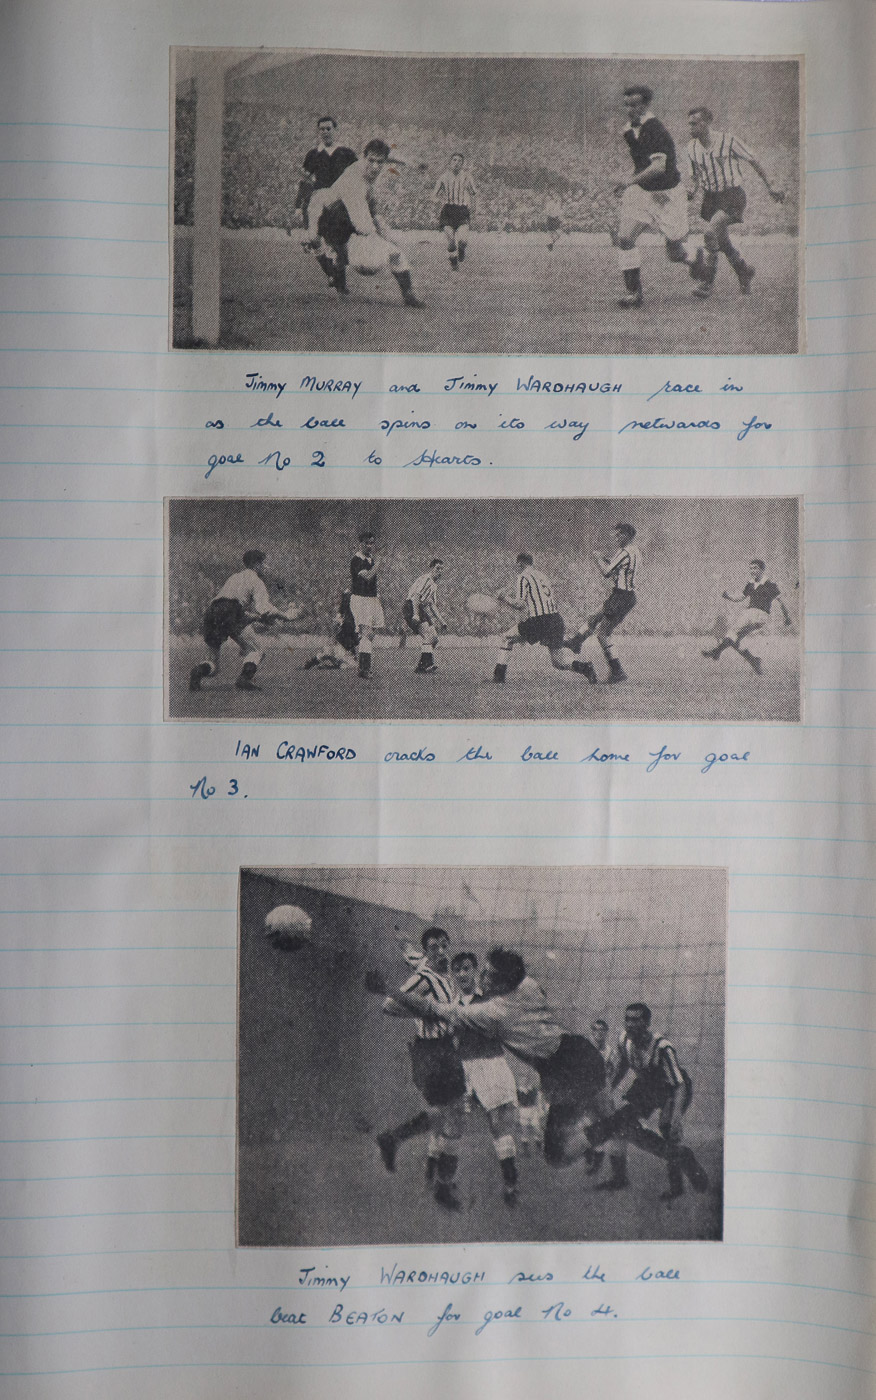 Jimmy MURRAY and Jimmy WARDHAUGH race in
as the ball spins on its way netwards for
goal No 2 to Hearts.
IAN CRAWFORD cracks the ball home for goal
No 3.
Jimmy WARDHAUGH sees the ball
beat BEATON for goal No 4.